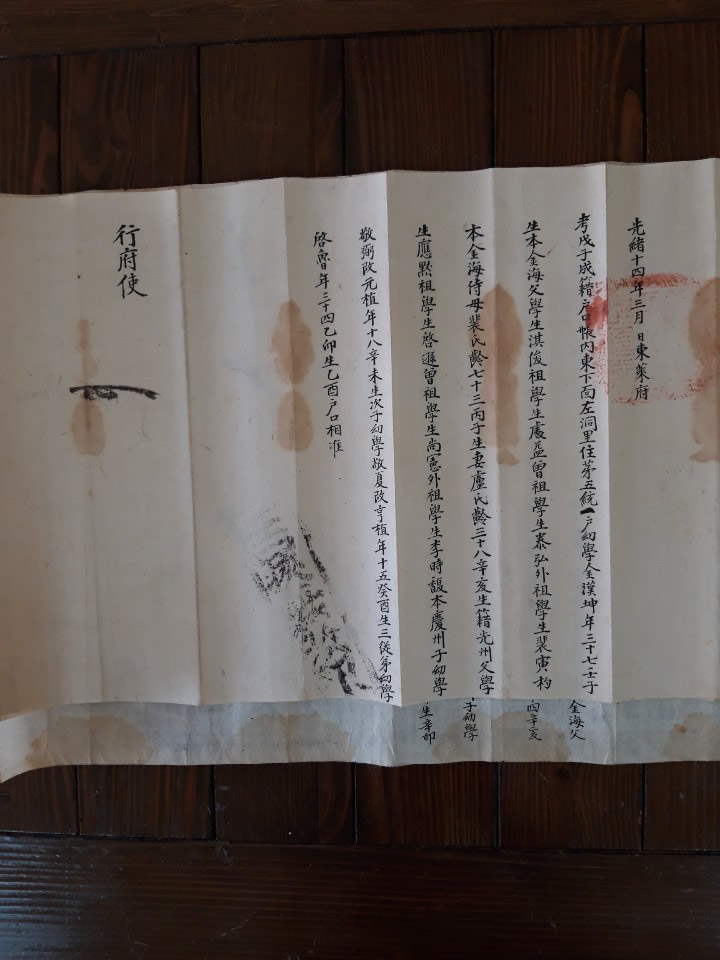 光緒十四年三月 日東萊府
考戊子成籍戶口帳內東下面左洞里住苐五統一戶幼學金漢坤年三十七壬子
生本金海父學生淇俊祖學生處益曾祖學生泰弘外祖學生裴寅杓
本金海侍母裴氏齡七十三丙子生妻盧氏齡三十八辛亥生籍光州父學
生應㸃祖學生啓遲曾祖學生尚憲外祖學生李時馥本慶州子幼學
敬弼改元植年十八辛未生次子幼學敬夏改亨植年十五癸酉生三從弟幼學
啓魯年三十四乙卯生乙酉戶口相準
行府使
金海父
四辛亥
子幼學
生辛卯